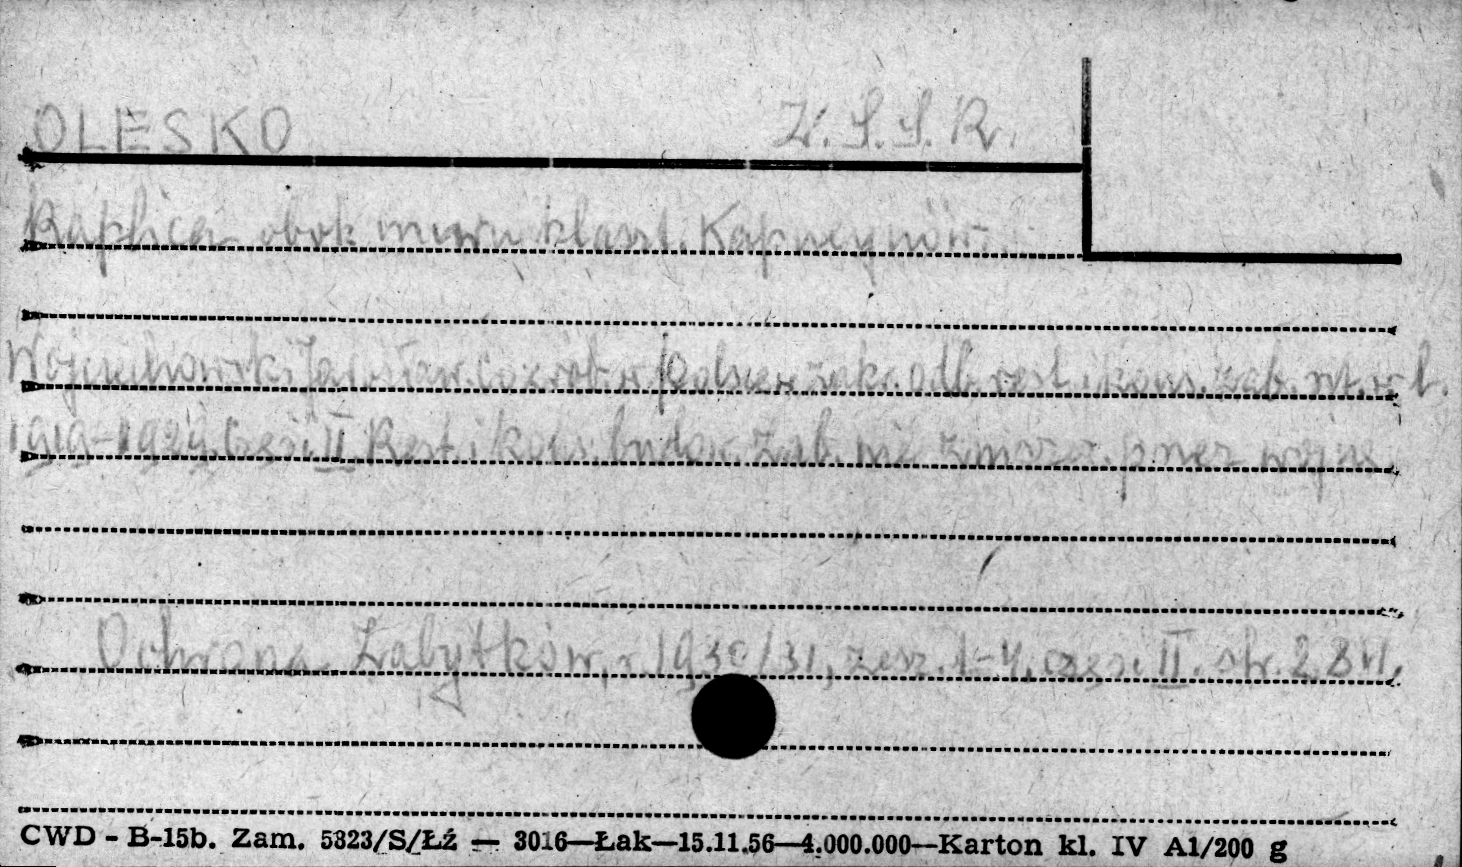 OLESKO Z.S.S.R.
Kaplica obok muru klaszt. Kapucynów.
Wojciechowski Jarosław. Co zrob. w Polsce w zakr. odb. rest. i kons. zab. szt. w l.
1919-1929. Częś. II Rest. i kons. budow. zab. nie zniszcz. przez wojnę.
Ochrona Zabytków, 1930/31, zesz. 1-4, częś. II. str. 284.
CWD - B-15b. Zam. 5823/S/Łź — 3016—Łak—15.11.56—4.000.000—Karton kl. IV A1/200 g